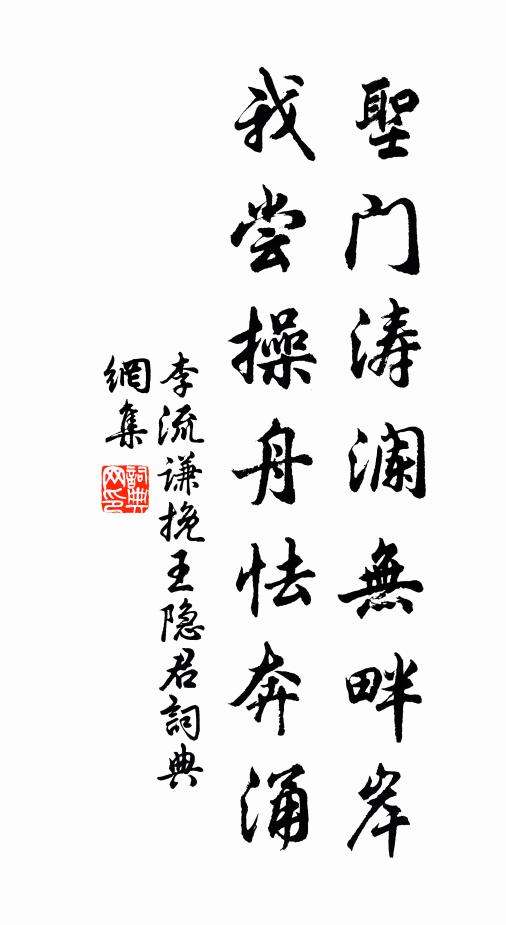 聖门涛澜無畔岸
我尝操舟怯奔涌
李流谦挽王隐君詞典
網集
詞典网印